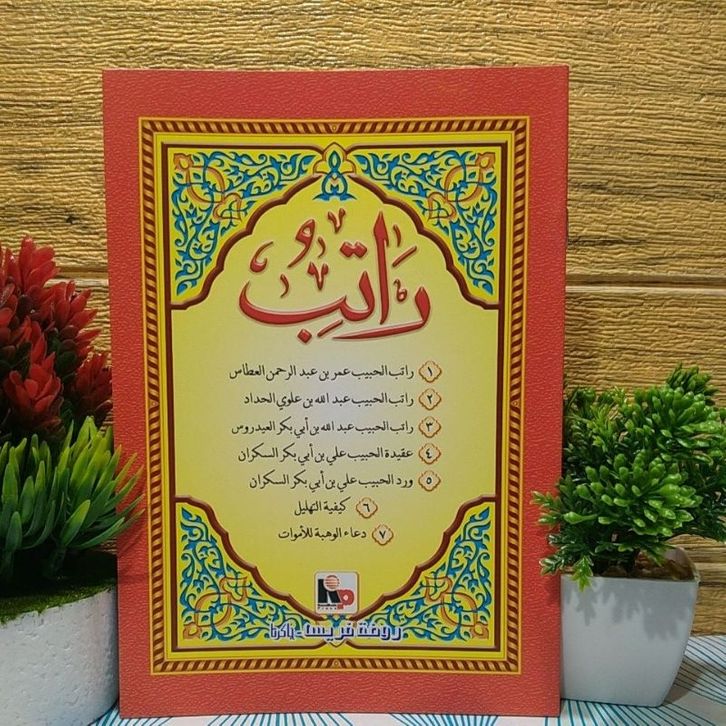 رَاتِبُ
١ راتب الحبيب عمر بن عبد الرحمن العطاس
٢ راتب الحبيب عبد الله بن علوي الحداد
٣ راتب الحبيب عبد الله بن أبي بكر العيدروس
٤ عقيدة الحبيب علي بن أبي بكر السكران
٥ ورد الحبيب علي بن أبي بكر السكران
٦ كيفية التهليل
٧ دعاء الوهبة للأموات
روضة فريسا - جاكرتا